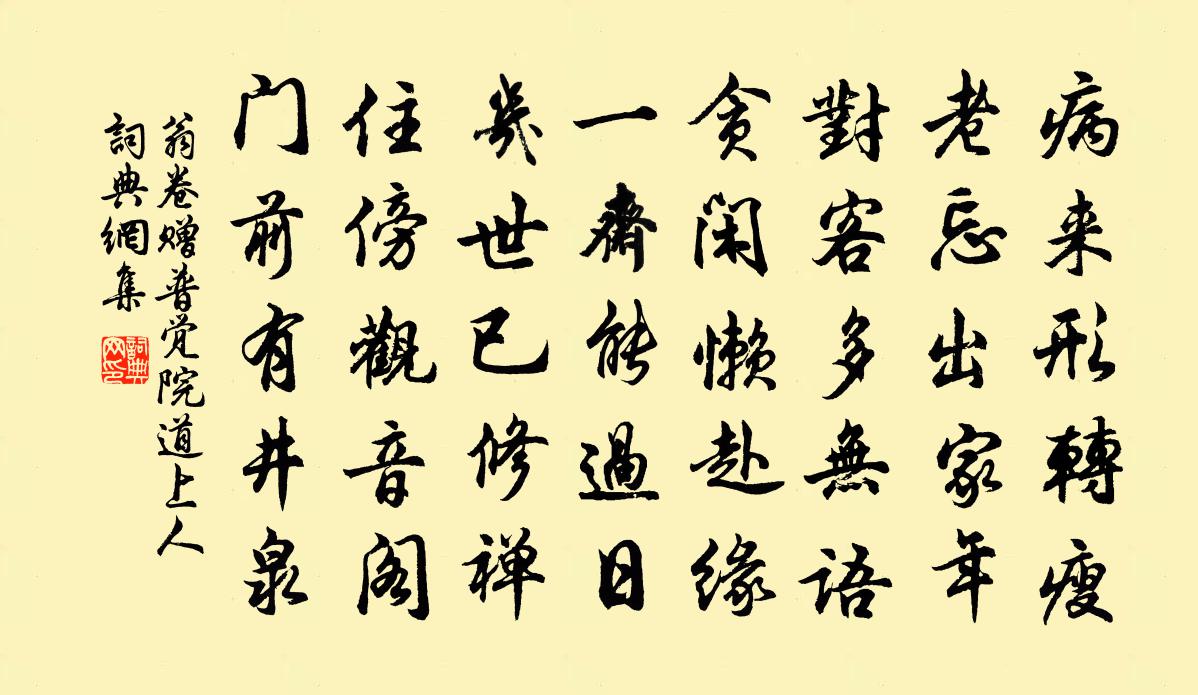 病来形轉瘦
老忘出家年
對客多無語
貪閑懒赴緣
一齋能過日
幾世已修禅
住傍觀音閣
门前有井泉
翁卷赠普觉院道上人
詞典網集
詞典网印